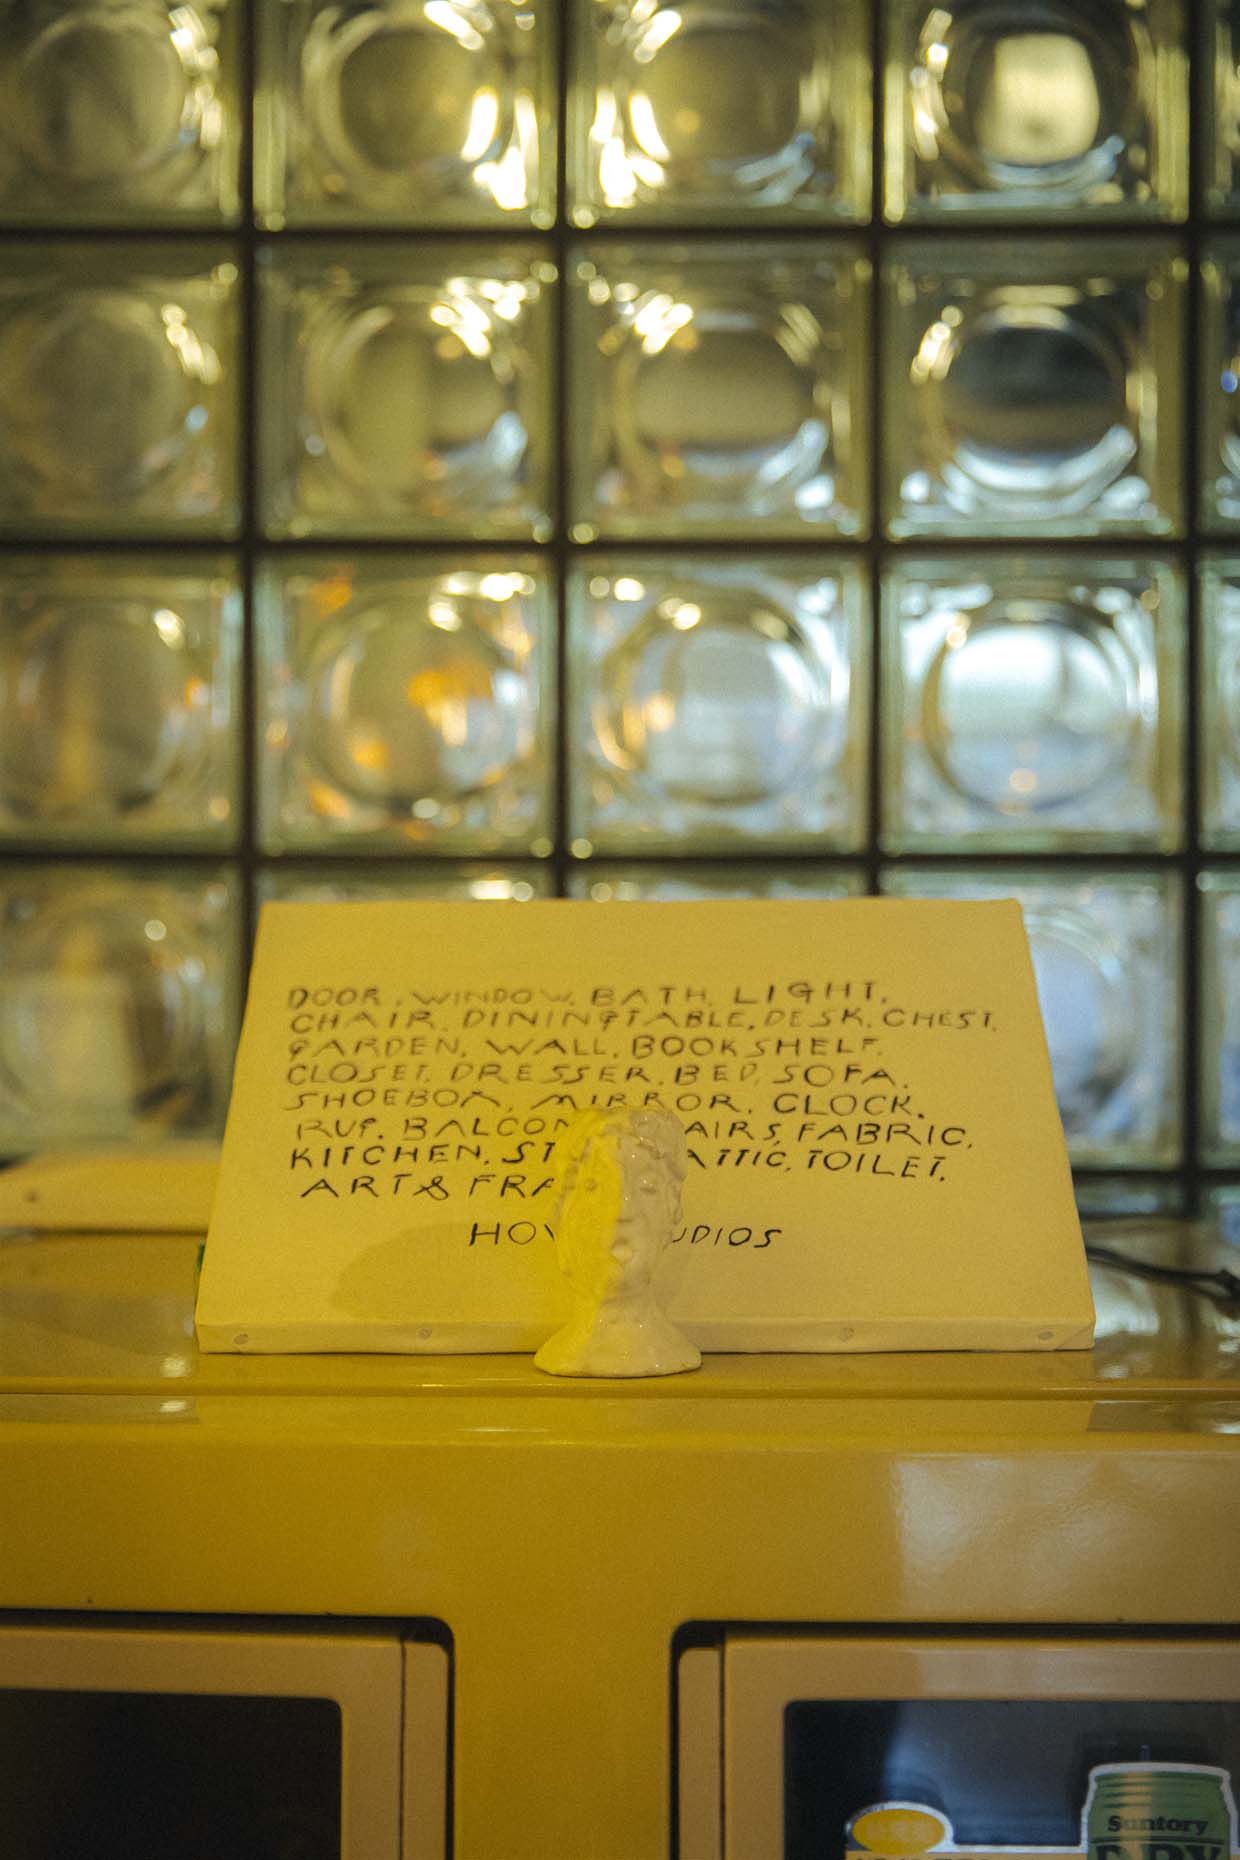 DOOR. WINDOW. BATH. LIGHT.
CHAIR. DININGTABLE. DESK. CHEST.
GARDEN. WALL. BOOKSHELF.
CLOSET. DRESSER. BED. SOFA.
SHOEBOX. MIRROR. CLOCK.
RUG. BALCON AIRS. FABRIC.
KITCHEN. ST ATTIC. TOILET.
ART& FRA
HO UDIOS
Suntory
DRY